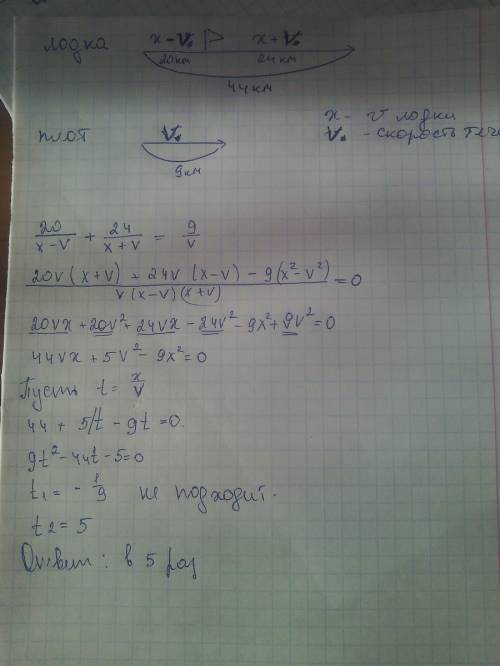 лодка x - V₀ x + V₀
20км 24км
44км
x - V лодки
плот V₀ V₀ - скорость теч
9км
20/(x-v) + 24/(x+v) = 9/v
(20v(x+v) + 24v(x-v) - 9(x²-v²))/(v(x-v)(x+v)) = 0
20vx + 20v² + 24vx - 24v² - 9x² + 9v² = 0
44vx + 5v² - 9x² = 0
Пусть t = x/v
44 + 5/t - 9t = 0.
9t² - 44t - 5 = 0
t₁ = - 1/9 не подходит.
t₂ = 5
Ответ: в 5 раз